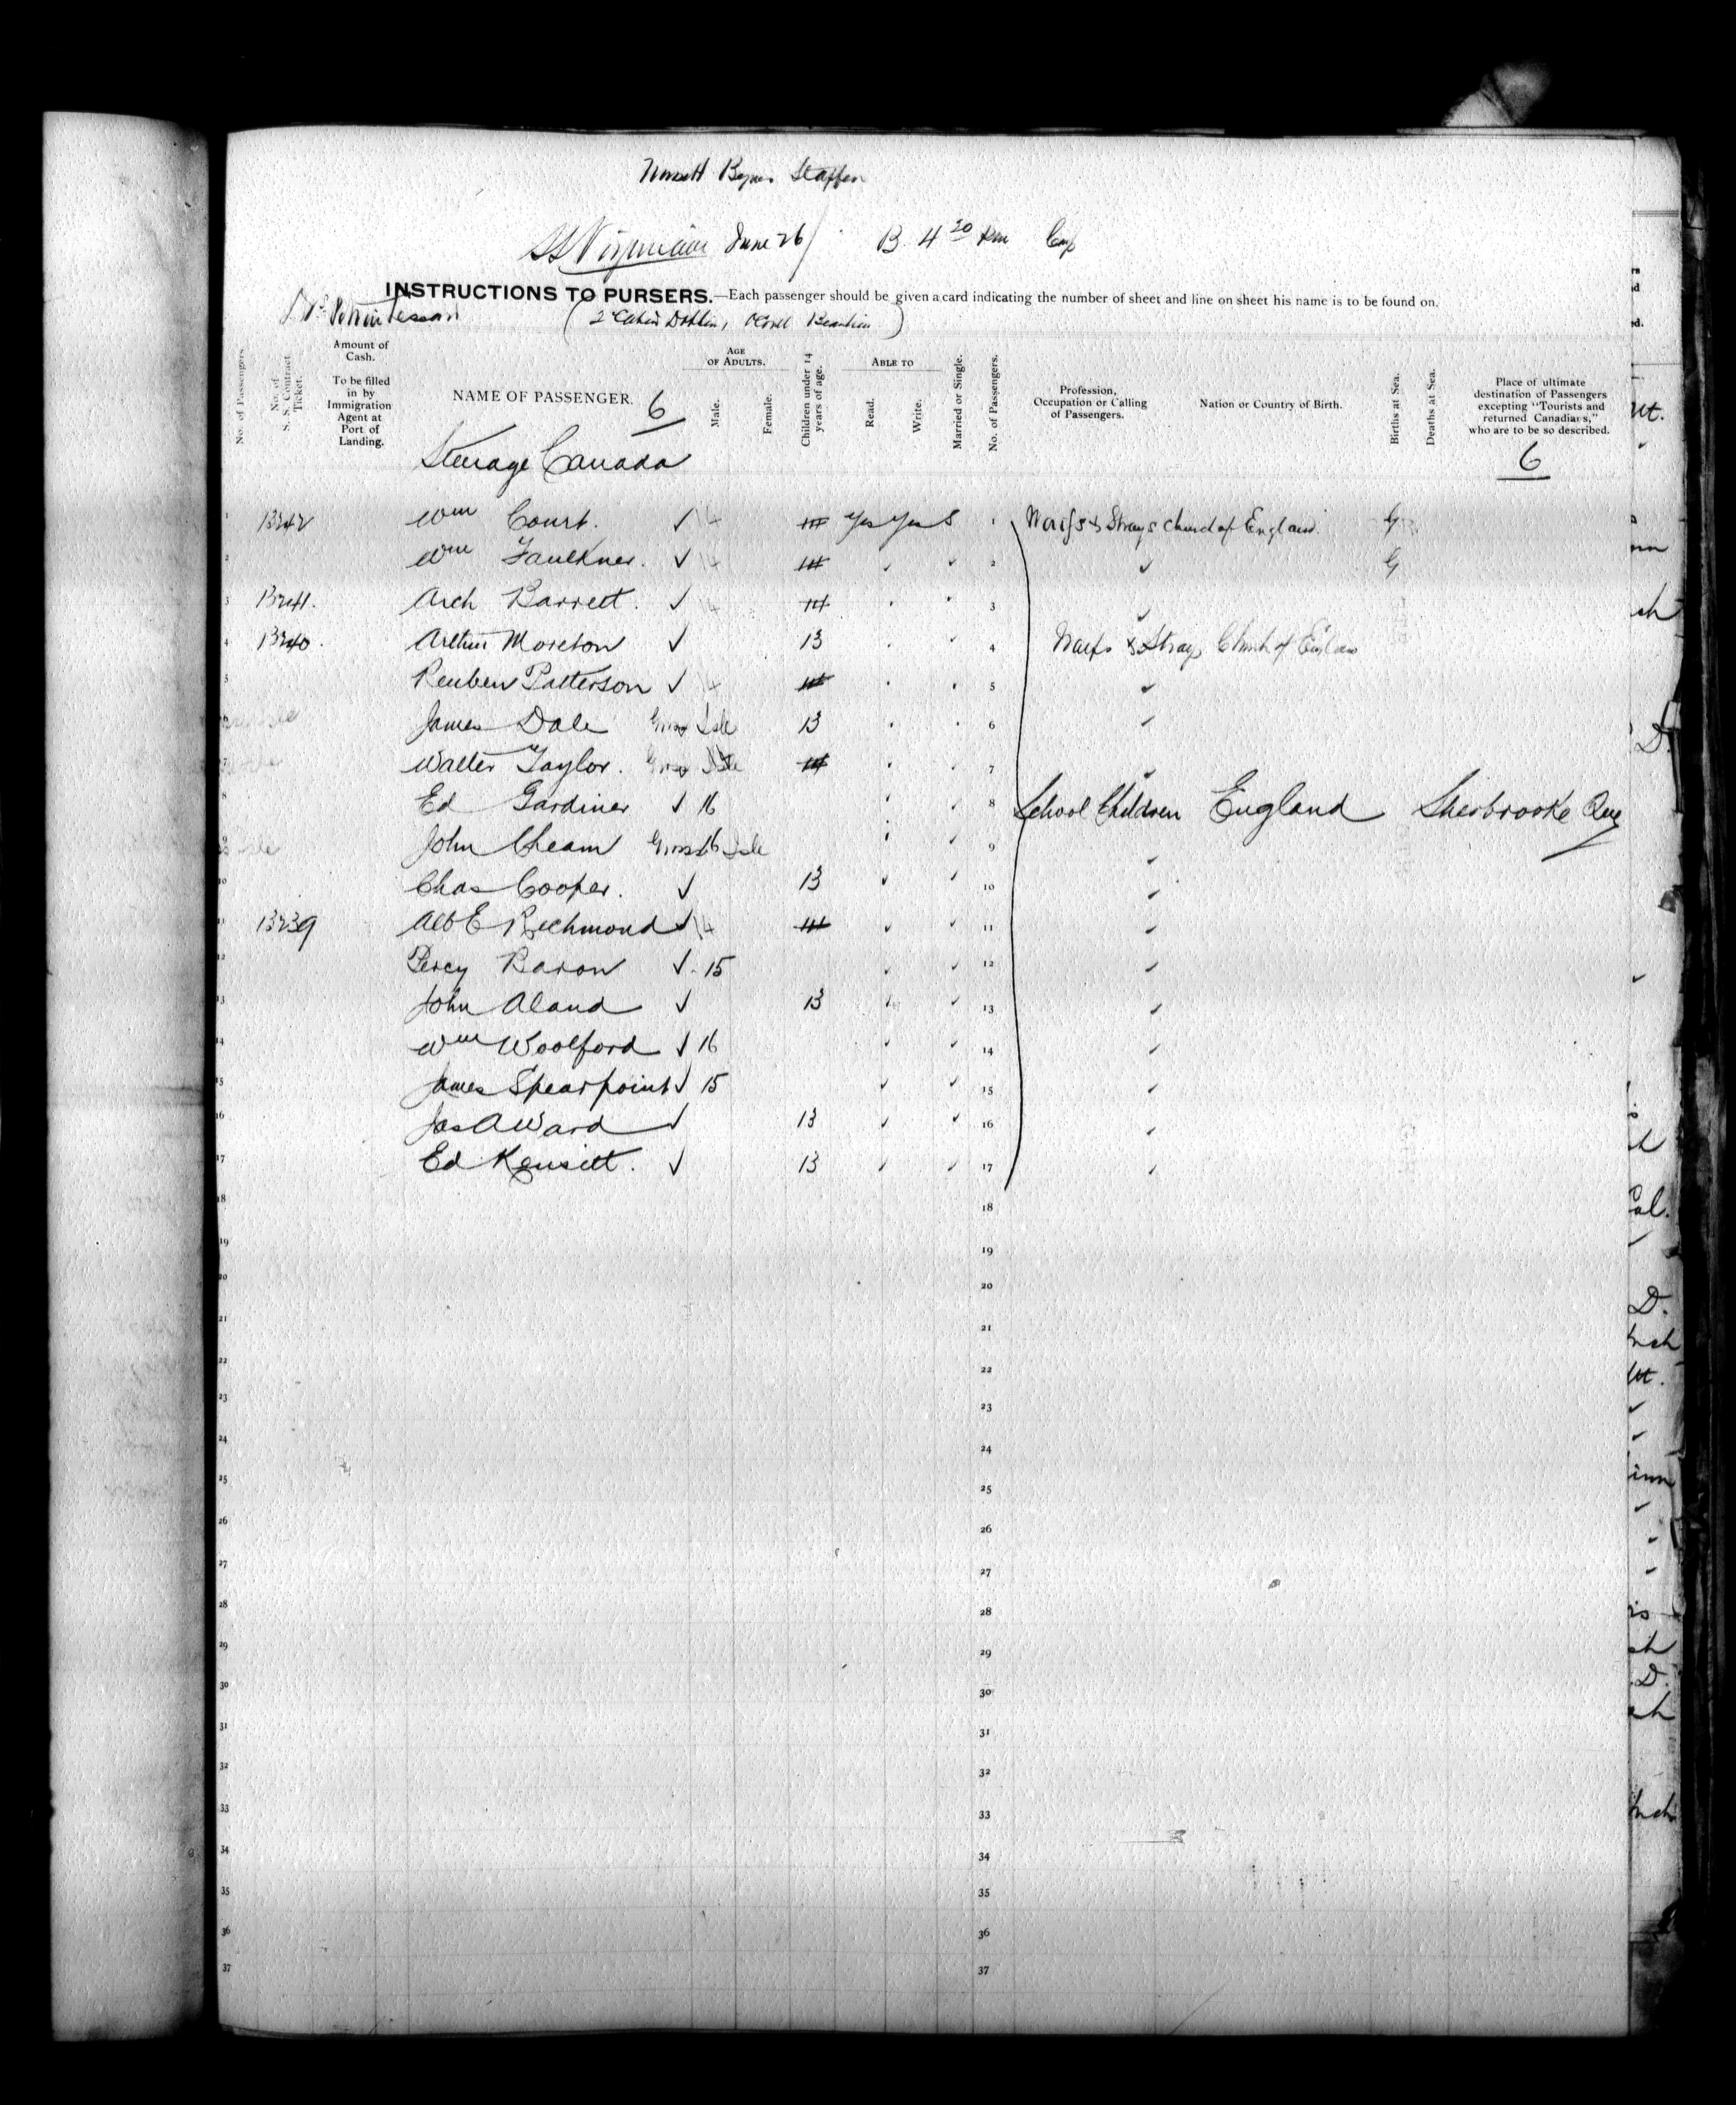 SS Virginian June 26/ B. 4 20
INSTRUCTIONS TO PURSERS.—Each passenger should be given a card indicating the number of sheet and line on sheet his name is to be found on.
No. of Passengers.
No. of S. S. Contract Ticket.
Amount of Cash.
To be filled in by Immigration Agent at Port of Landing.
NAME OF PASSENGER. 6
AGE OF ADULTS.
Male.
Female.
Children under 14 years of age.
ABLE TO
Read.
Write.
Married or Single.
No. of Passengers.
Profession, Occupation or Calling of Passengers.
Nation or Country of Birth.
Births at Sea.
Deaths at Sea.
Place of ultimate destination of Passengers excepting "Tourists and returned Canadians," who are to be so described.
6
Steerage Canada
1 13242 Wm Court. ✓ 14 14 Yes Yes S 1 Waifs & Strays Church of England
2 Wm Faulkner. ✓ 14 14 2
3 13241. Arch Barrett. ✓ 14 14 3
4 13240. Arthur Moreton ✓ 13 4 Waifs & Strays Church of England
5 Reuben Patterson ✓ 14 14 5
6 James Dale Gross Isle 13 6
7 Walter Taylor. Gross Isle 14 7
8 Ed Gardiner ✓ 16 8 School Children England Sherbrooke Que
9 John Cheam Gross Isle 16 9
10 Chas Cooper. ✓ 13 10
11 13239 Alb E Richmond ✓ 14 14 11
12 Percy Baron ✓ 15 12
13 John Aland ✓ 13 13
14 Wm Woolford ✓ 16 14
15 James Spearpoint ✓ 15 15
16 Jas A Ward ✓ 13 16
17 Ed Kensitt. ✓ 13 17
18 18
19 19
20 20
21 21
22 22
23 23
24 24
25 25
26 26
27 27
28 28
29 29
30 30
31 31
32 32
33 33
34 34
35 35
36 36
37 37